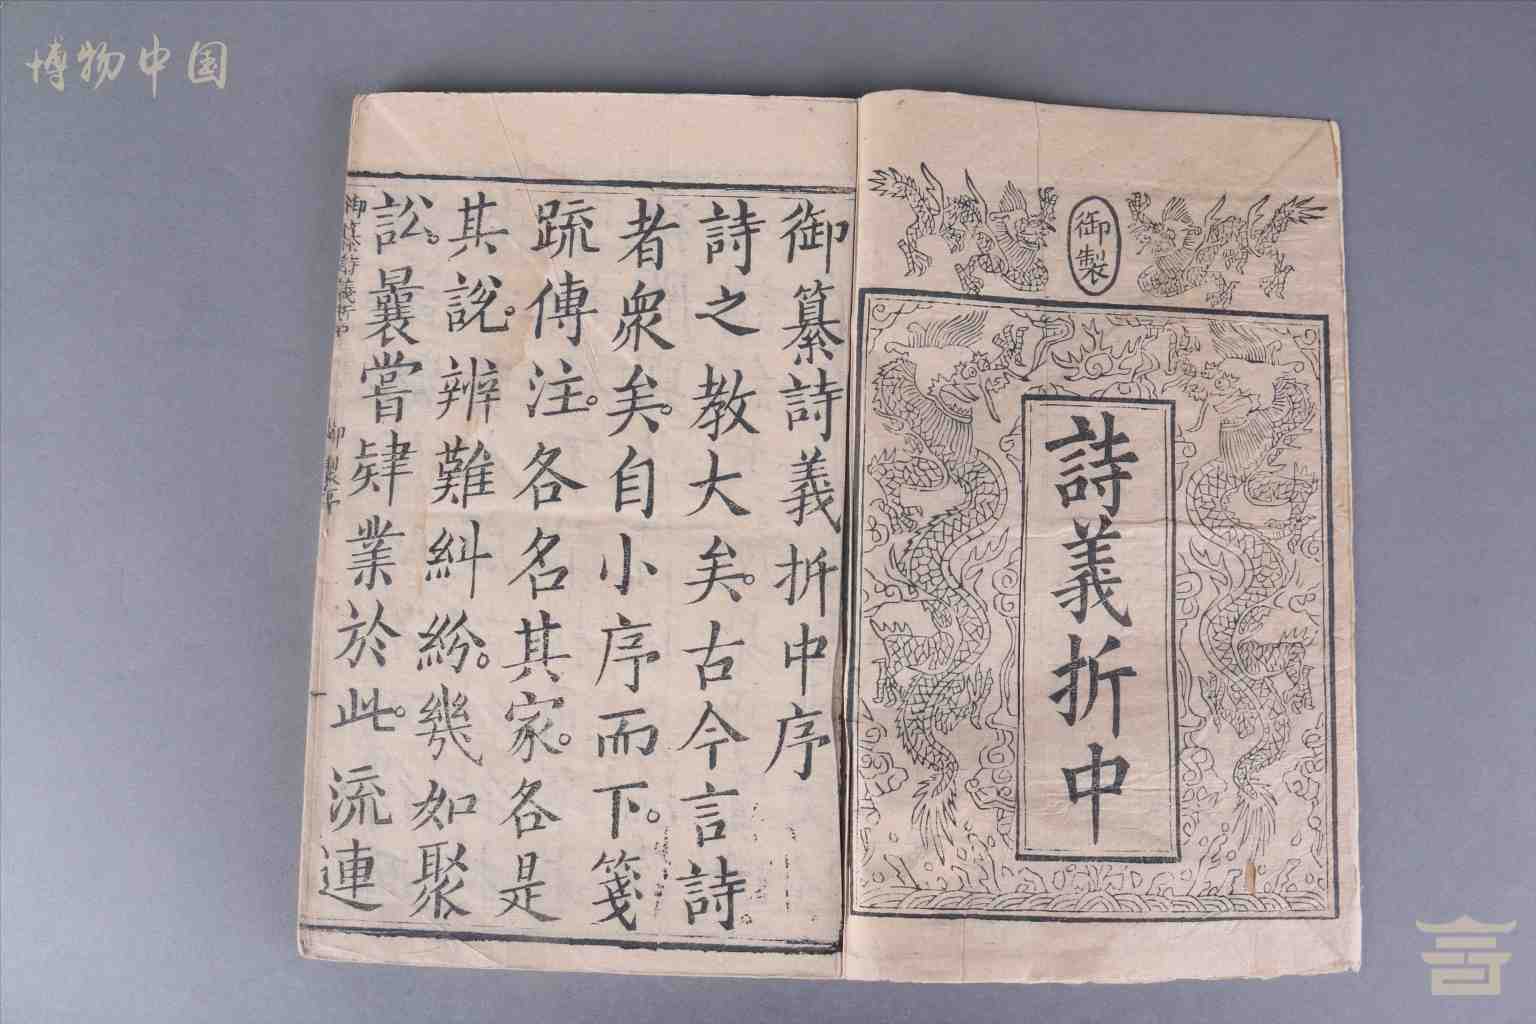 博物中国
御製
詩義折中
御纂詩義折中序
詩之教大矣。古今言詩。
者衆矣。自小序而下。箋
疏傳注。各名其家。各是
其說。辨難糾紛。幾如聚
訟。曩嘗肄業於此。流連
御纂詩義折中
御製序